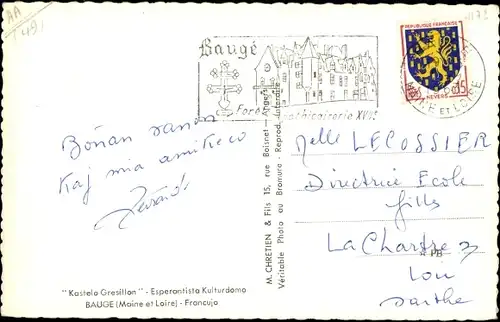 AA
Baugé
Forêt
Apothicairerie XVIIe
REPUBLIQUE FRANÇAISE
NEVERS
MAINE ET LOIRE
Bonan sanon
Kaj mia amikeco
Melle LECOSSIER
Directrice Ecole
filles
La Chartre s/
Loir
Sarthe
M. CHRETIEN & Fils 15, rue Boisnet - Angers
Véritable Photo au Bromure - Reprod. Interdite
"Kastelo Gresillon" - Esperantista Kulturdomo
BAUGE (Maine et Loire) - Francujo